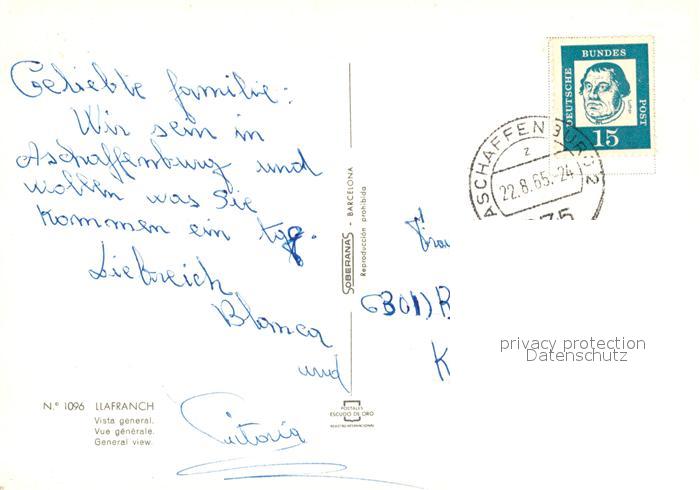 Geliebte familie:
Wir sein in
Aschaffenburg und
wollen was Sie
kommen ein tag.
Liebreich
Blanca
und
Victoria
Nº 1096 LLAFRANCH
Vista general.
Vue générale.
General view.
POSTALES
ESCUDO DE ORO
REGISTRO INTERNACIONAL
SOBERANAS - BARCELONA
Reproducción prohibida
DEUTSCHE
BUNDES
POST
15
ASCHAFFENBURG 2
z
22.8.65.-24
Frau
(6301) R
K
privacy protection
Datenschutz